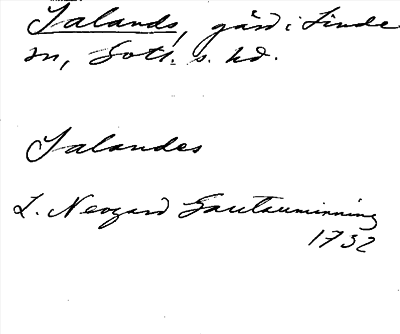 Salands, gård i Linde
sn, Gotl. s. hd.
Salandes
L. Neogard Gautauminning
1732